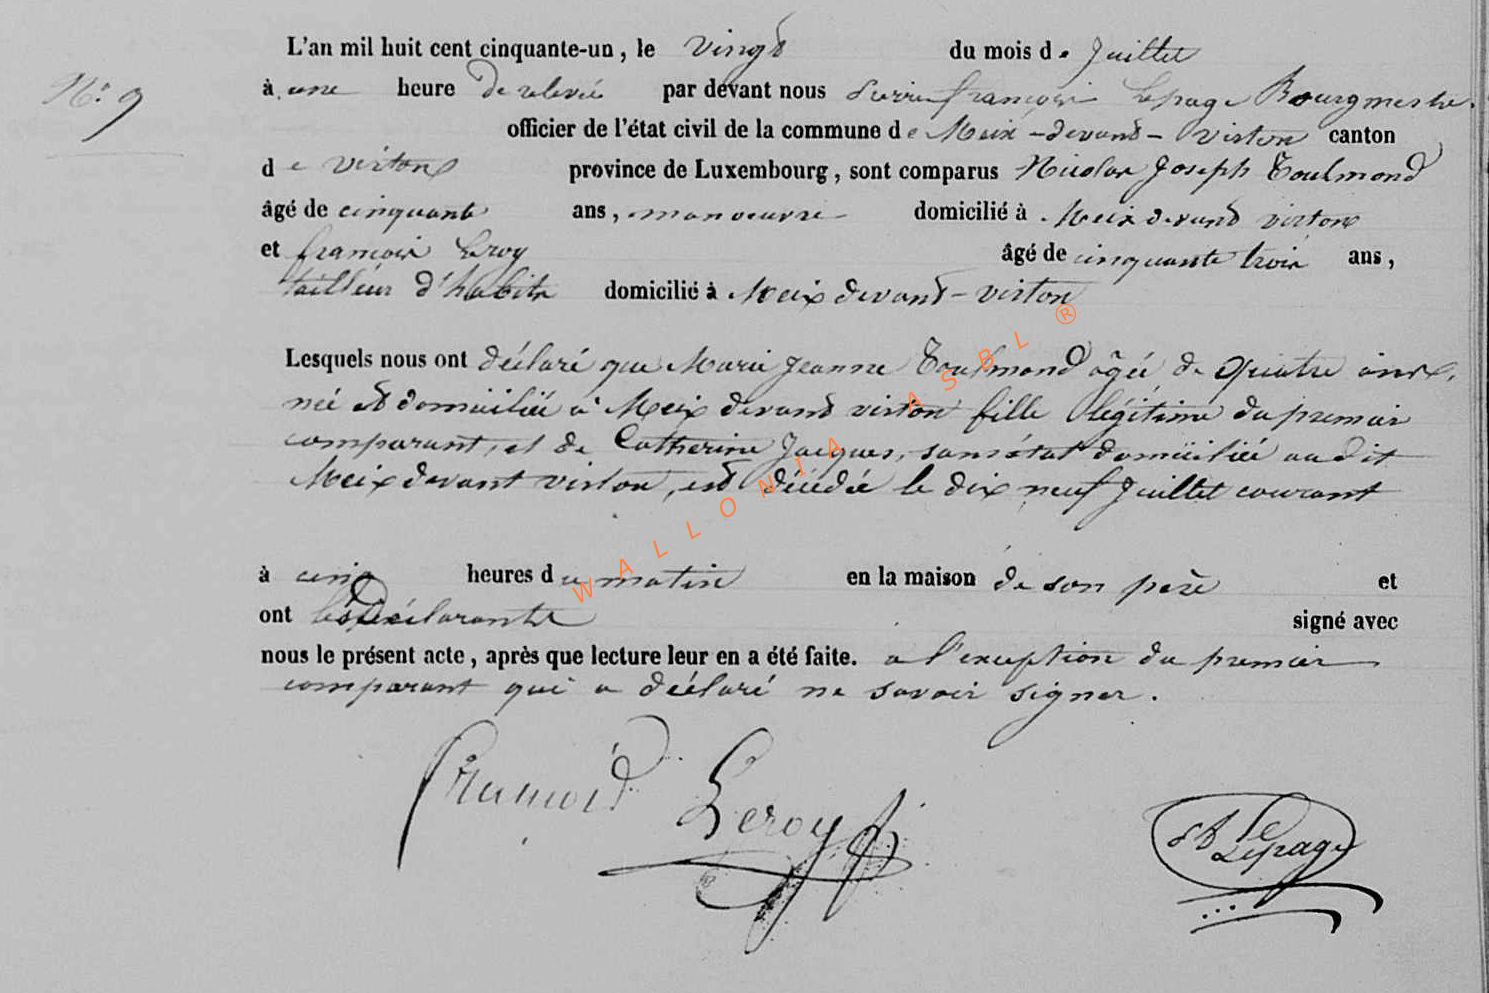 L'an mil huit cent cinquante-un, le vingt du mois de Juillet
N° 9
à une heure de relevée par devant nous Pierre françois Lepage Bourgmestre
officier de l'état civil de la commune de Meix-devant-virton canton
de virton province de Luxembourg, sont comparus Nicolas Joseph Toulmond
âgé de cinquante ans, manoeuvre domicilié à Meix devant virton
et françois Leroy âgé de cinquante trois ans,
tailleur d'habits domicilié à Meix devant-virton
Lesquels nous ont déclaré que Marie Jeanne Toulmond âgée de quatre ans,
née et domiciliée à Meix devant virton fille légitime du premier
comparant, et de Catherine Jacques, sans état domiciliée au dit
Meix devant virton, est décédée le dix neuf Juillet courant
à cinq heures du matin en la maison de son père et
ont les déclarants signé avec
nous le présent acte, après que lecture leur en a été faite. a l'exception du premier
comparant qui a déclaré ne savoir signer.
francois Leroy
Lepage
WALLONIA ASBL ®